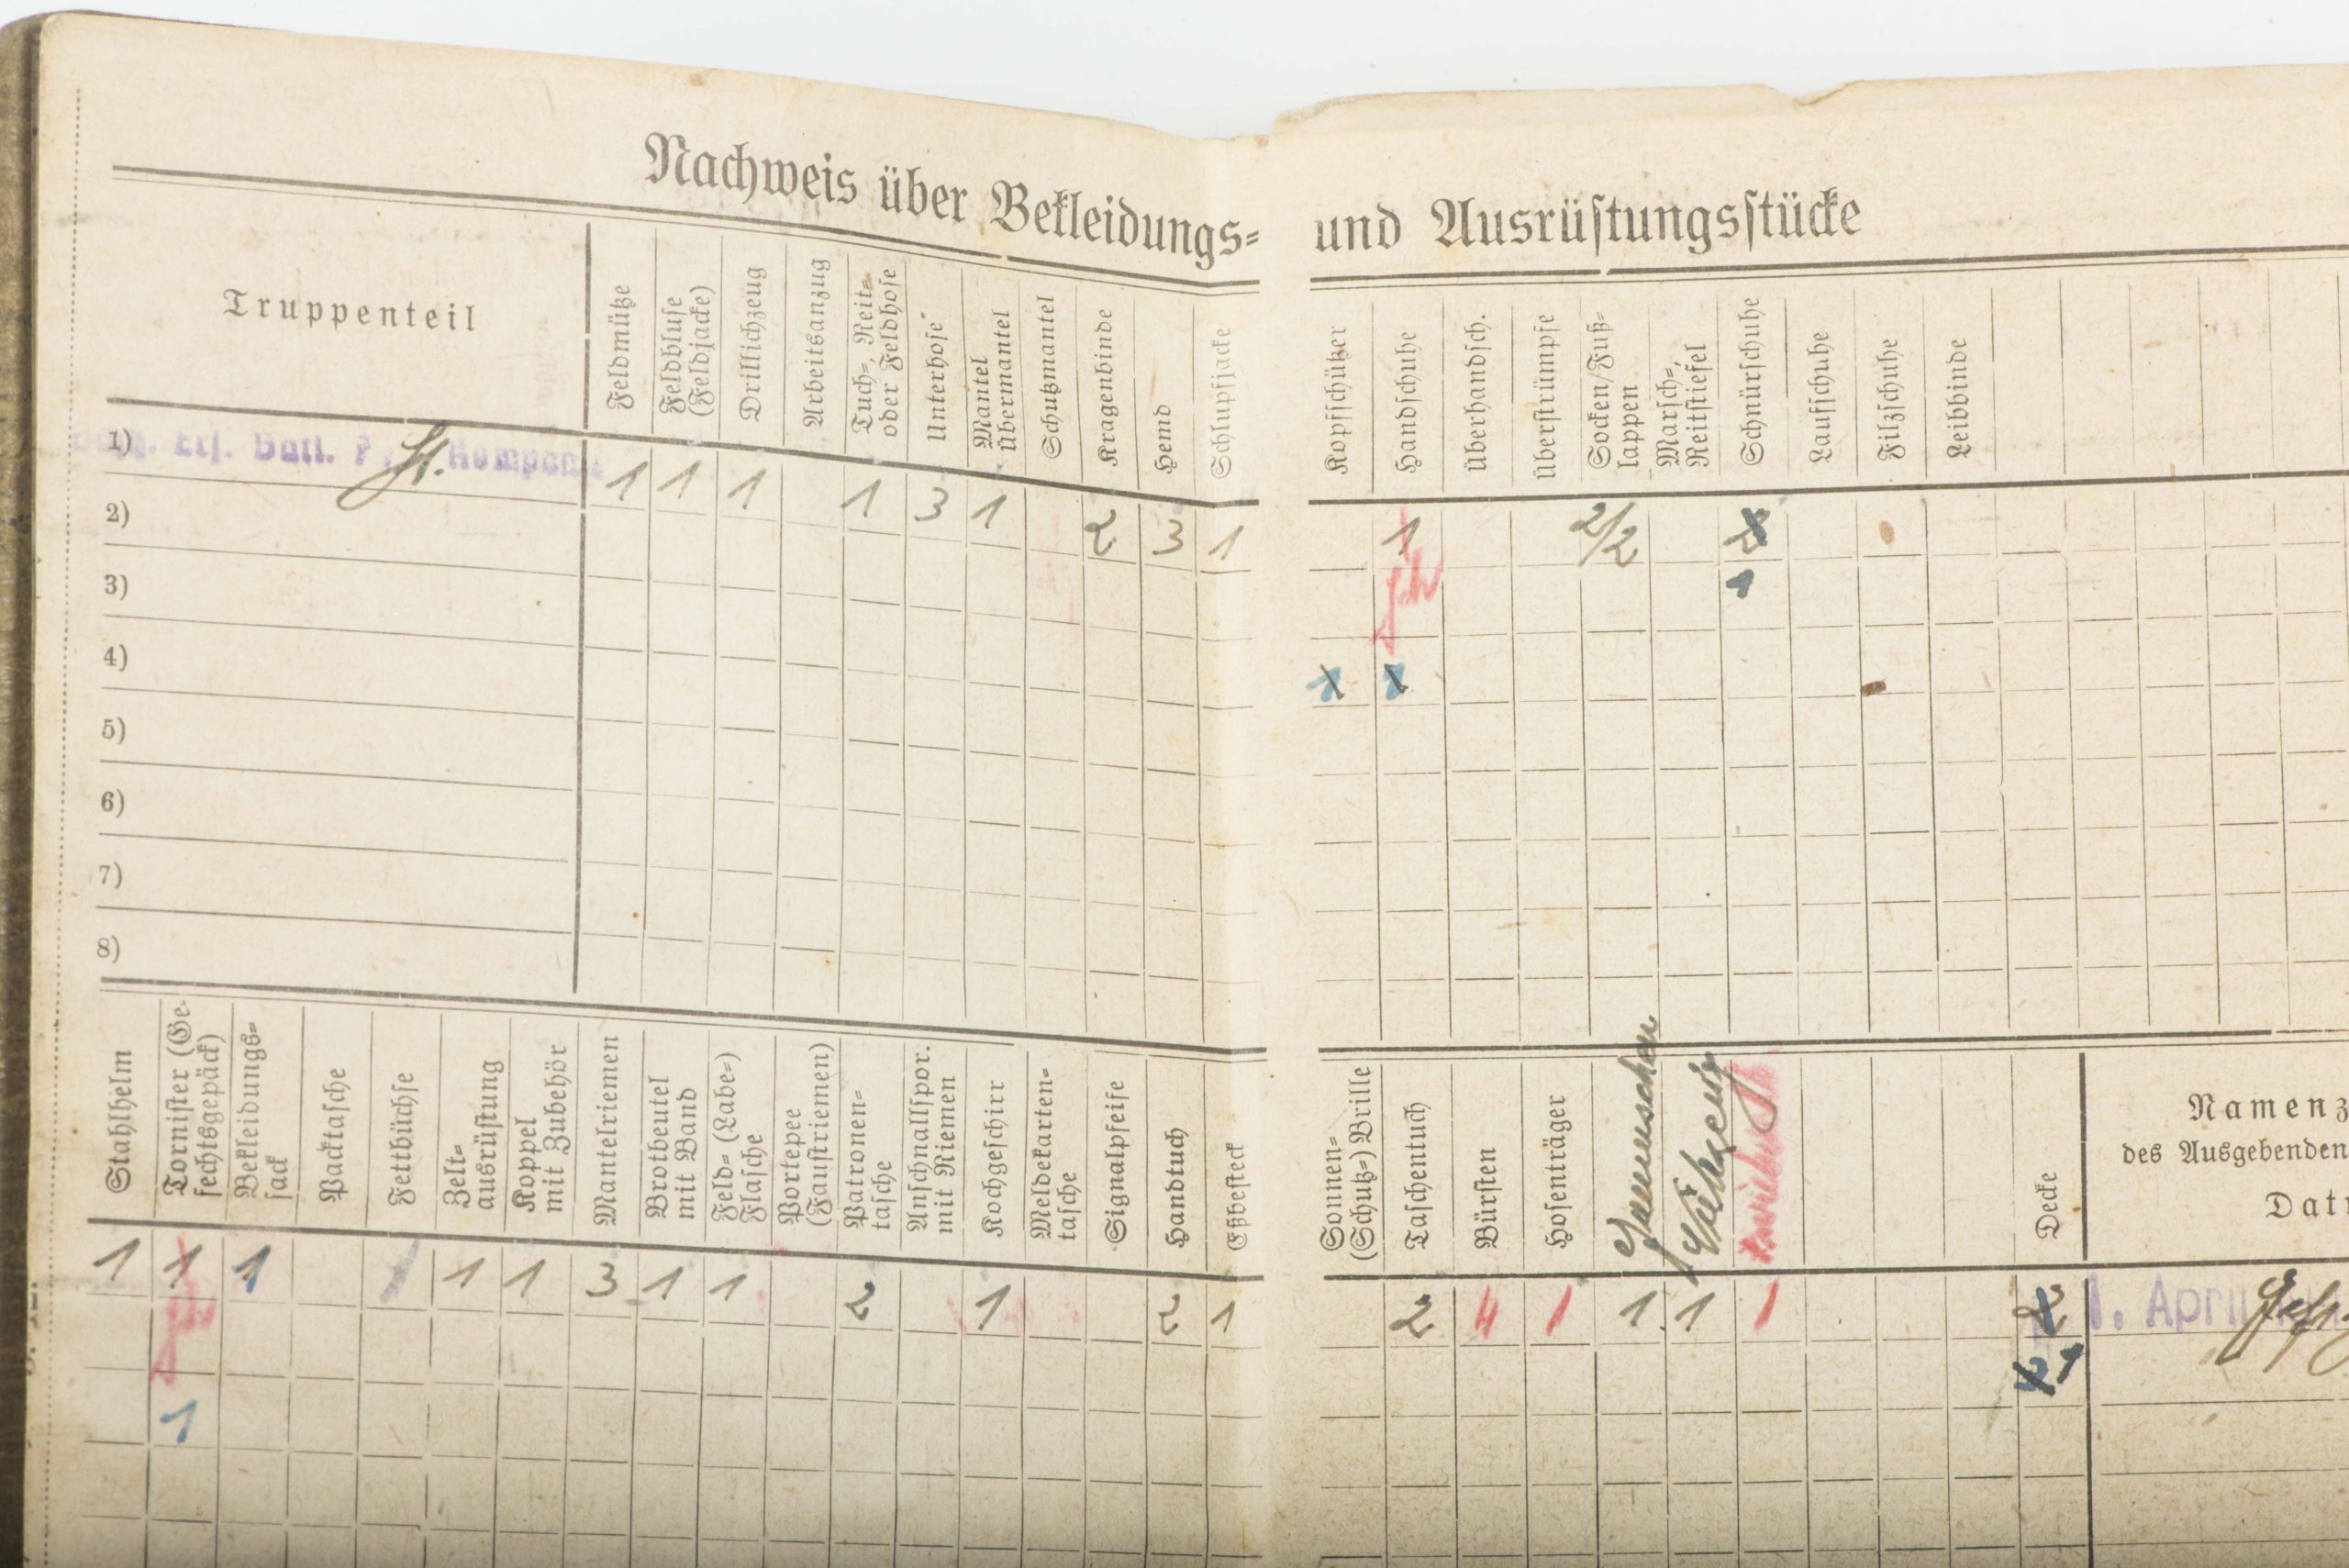 Nachweis über Bekleidungs- und Ausrüstungsstücke
Truppenteil
Feldmütze
Feldbluse
(Feldjacke)
Drillichzeug
Arbeitsanzug
Tuch-, Reit-
oder Feldhose
Unterhose
Mantel
Übermantel
Schutzmantel
Kragenbinde
Hemd
Schlupfjacke
Kopfschützer
Handschuhe
Überhandsch.
Überstrümpfe
Socken/Fuß-
lappen
Marsch-,
Reitstiefel
Schnürschuhe
Laufschuhe
Filzschuhe
Leibbinde
1) Ers. Batl. St. Kompanie
1 1 1 1 3 1 2 3 1 1 2/2 2
2)
1
3)
4)
5)
6)
7)
8)
Stahlhelm
Tornister (Ge-
fechtsgepäck)
Bekleidungs-
sack
Packtasche
Fettbüchse
Zelt-
ausrüstung
Koppel
mit Zubehör
Mantelriemen
Brotbeutel
mit Band
Feld- (Labe-)
Flasche
Portepee
(Faustriemen)
Patronen-
tasche
Anschnallspor.
mit Riemen
Kochgeschirr
Meldekarten-
tasche
Signalpfeife
Handtuch
Eßbesteck
Sonnen-
(Schutz-) Brille
Taschentuch
Bürsten
Hosenträger
Nähzeug
Decke
Namenz
des Ausgebenden
Datu
1 1 1 1 1 3 1 1 2 1 2 1 2 4 1 1 1 1 2 1. April
1
1